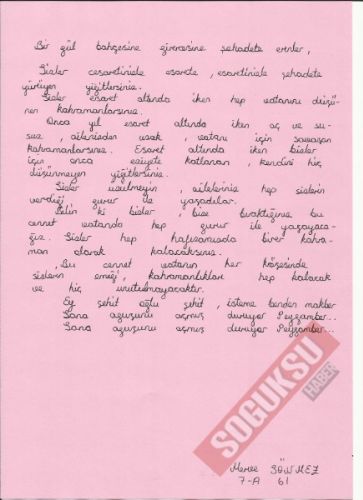 Bir gül bahçesine girercesine şehadete erenler,
Sizler cesaretinizle esarete, esaretinizle şehadete
yürüyen yiğitlersiniz.
Sizler esaret altında iken hep vatanını düşü-
nen kahramanlarsınız.
Onca yıl esaret altında iken aç ve su-
suz, ailenizden uzak, vatanı için savaşan
kahramanlarsınız. Esaret altında iken bizler
için onca eziyete katlanan, kendini hiç
düşünmeyen yiğitlersiniz.
Sizler üzülmeyin, aileleriniz hep sizlerin
verdiği gurur ile yaşadılar.
Bilin ki bizler, bize bıraktığınız bu
cennet vatanda hep gurur ile yaşayaca-
ğız. Sizler hep hafızamızda birer kahra-
man olarak kalacaksınız.
Bu cennet vatanın her köşesinde
sizlerin emeği, kahramanlıkları hep kalacak
ve hiç unutulmayacaktır.
Ey şehit oğlu şehit, isteme benden makber
Sana aguşunu açmış duruyor Peygamber...
Sana aguşunu açmış duruyor Peygamber...
SOGUKSU
HABER
Merve SÖNMEZ
7-A 61